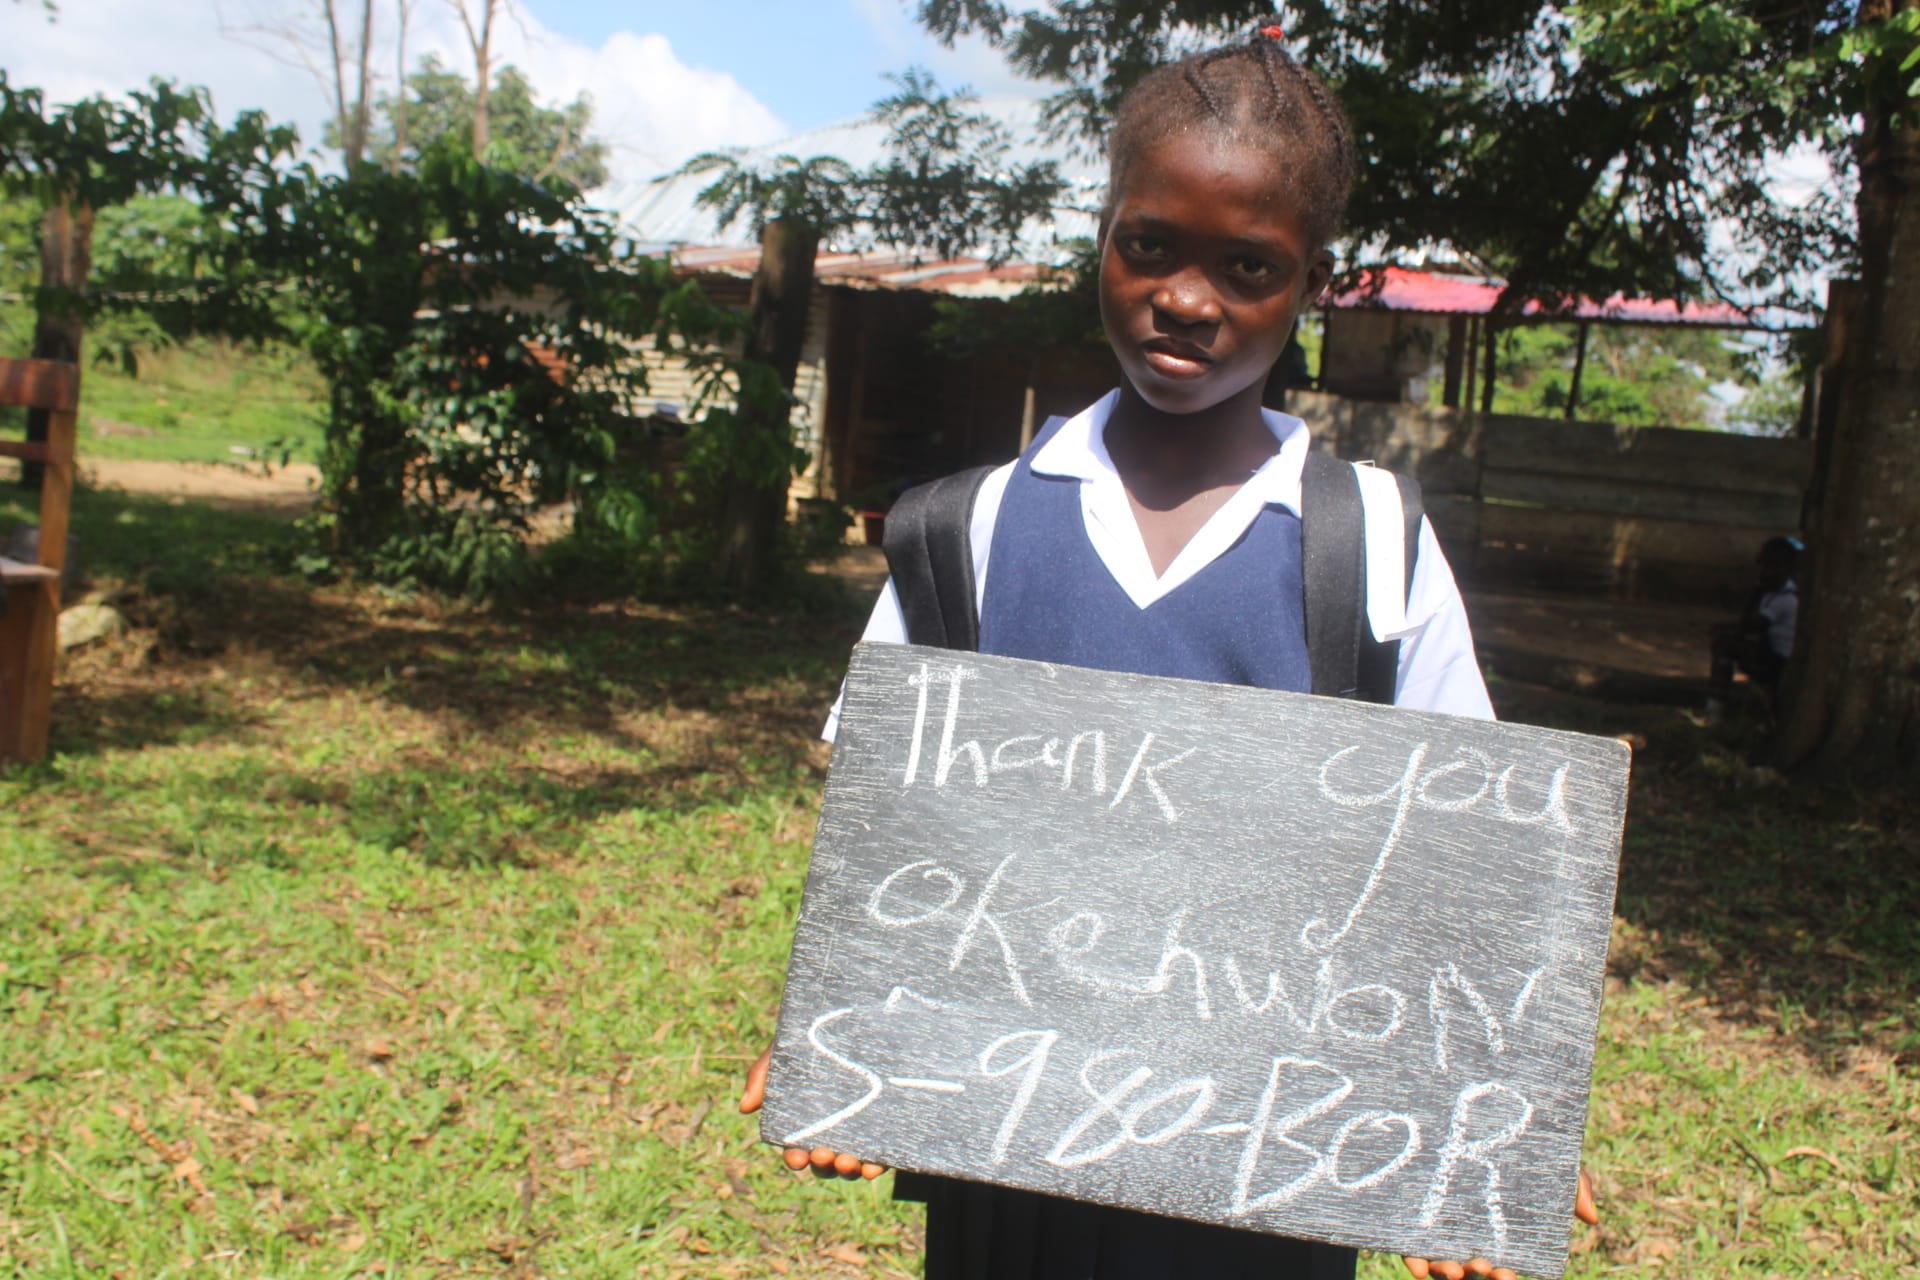 Thank you
okehwon
S-980-BOR